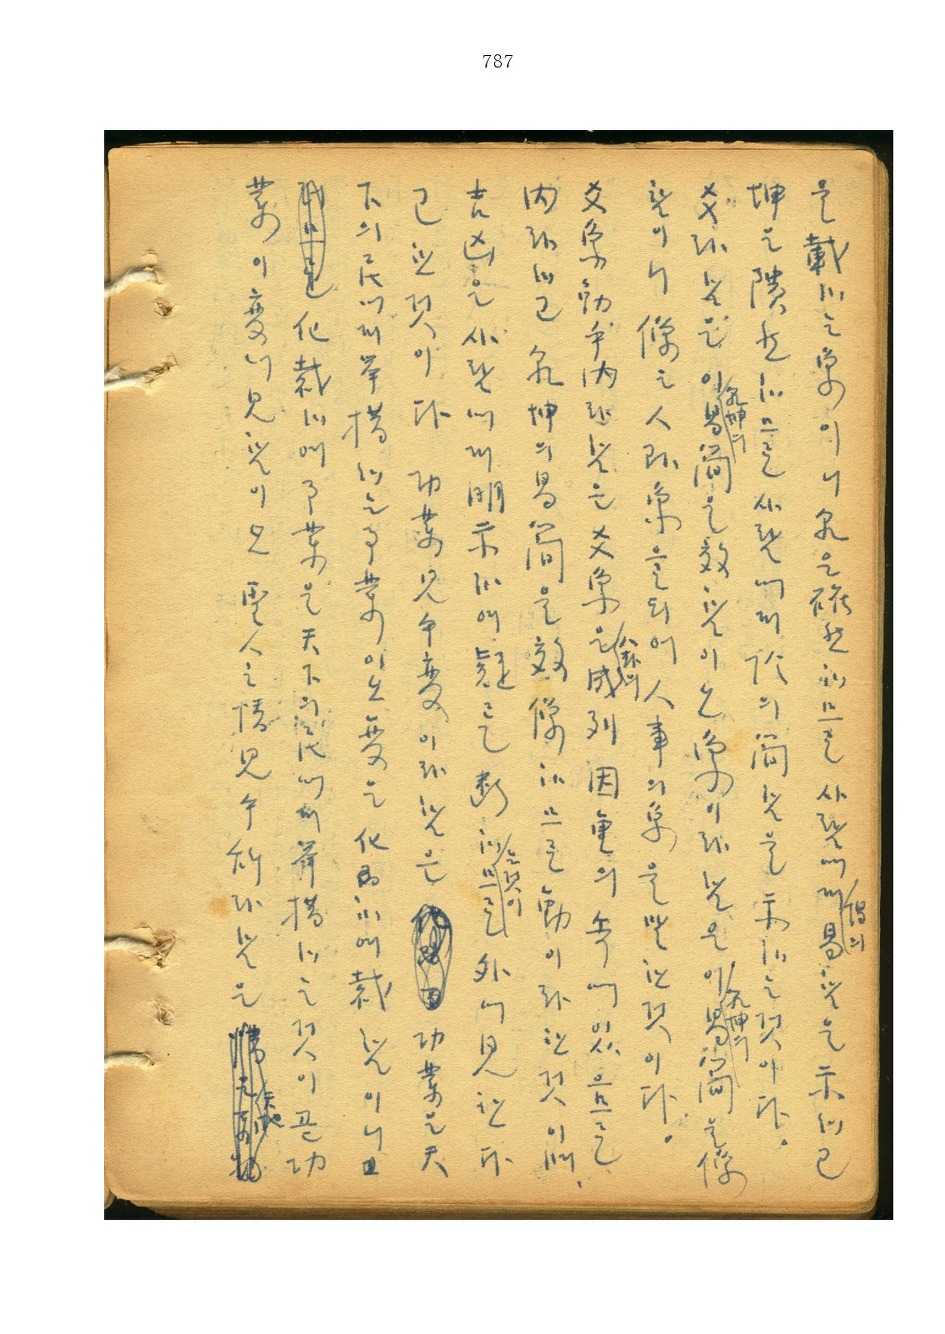 787
을 載하는 象이니 乾은 確然히으로 사람에게 陽의 易함을 示하고
坤은 隤然히으로 사람에게 陰의 簡함을 示하는 것이다.
爻라 함은 이 乾坤의 易簡을 效함이오 象이라 함은 이 乾坤의 易簡을 像
함이니 像은 人
爻象動乎內라 함은 爻象은 八卦의 成列 因重의 속에 있으므로
內라 하고 乾坤의 易簡을 效像하므로 動이라 한 것이며,
吉凶은 사람에게 明示하여 疑를 斷하는 것이므로 外에 見한다
고 한 것이다 功業見乎變이라 함은 功業은 天
下의 民에게 擧措하는 事業이오 變은 化而하여 裁함이니 곧
化裁하여 事業을 天下의 民에게 擧措하는 것이 곧 功
業이 變에 見함이오 聖人之情見乎辭라 함은 天地